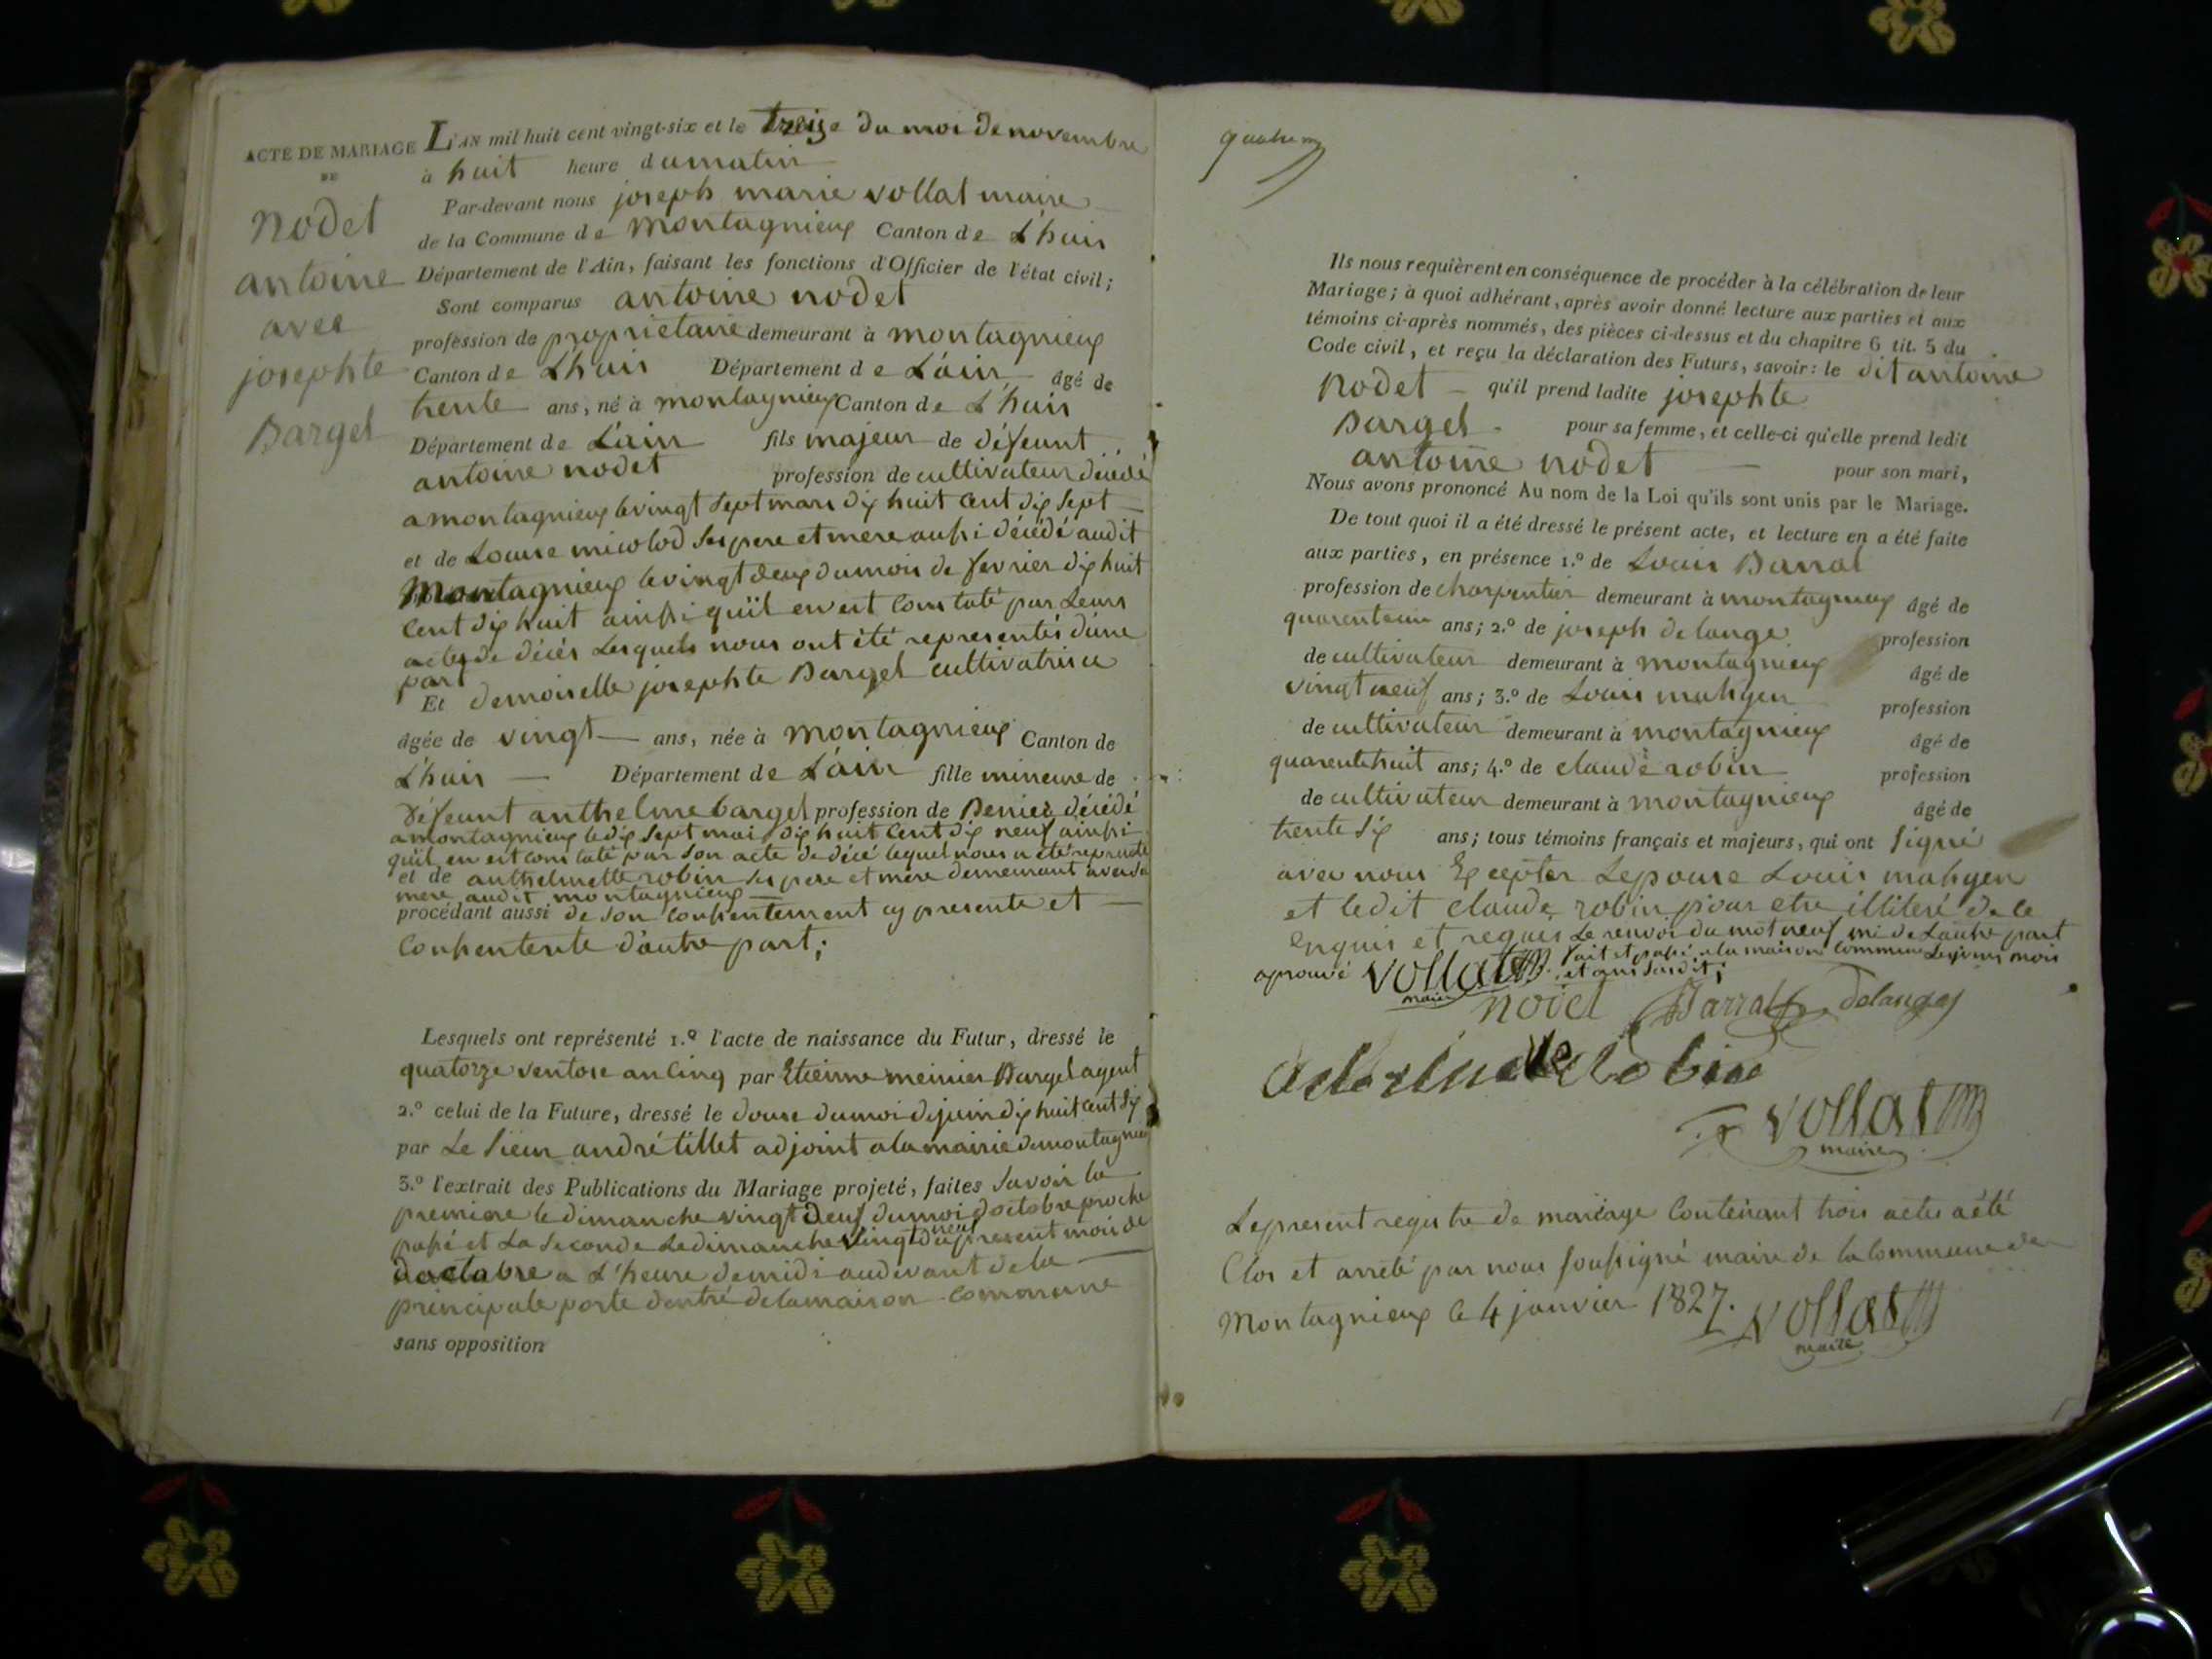 ACTE DE MARIAGE
DE
Nodet
antoine
avec
josephte
Bargel
L'AN mil huit cent vingt-six et le treize du moi de novembre
à huit heure du matin
Par-devant nous joseph marie vollat maire
de la Commune de Montagnieux Canton de L'huis
Département de l'Ain, faisant les fonctions d'Officier de l'état civil;
Sont comparus antoine nodet
profession de proprietaire demeurant à montagnieux
Canton de L'huis Département de L'ain âgé de
trente ans, né à montagnieux Canton de L'huis
Département de L'ain fils majeur de défeunt
antoine nodet profession de cultivateur décédé
a montagnieux le vingt sept mars dix huit cent dix sept
et de Louise micolod ses pere et mere aussi décédé audit
Montagnieux le vingt deux du mois de fevrier dix huit
cent dix huit ainssi qu'il en est constaté par Leurs
actes de décés Lesquels nous ont été representés d'une
part
Et demoiselle josephte Bargel cultivatrice
âgée de vingt ans, née à montagnieux Canton de
L'huis Département de L'ain fille mineure de
défeunt anthelme bargel profession de décédé
a montagnieux le dix sept mai dix huit cent dix neuf ainssi
qu'il en est constaté par son acte de décé lequel nous a été representé
et de anthelmette robin ses pere et mère demeurant avec sa
mere audit montagnieux
procédant aussi de son consentement cy presente et
consentente d'autre part;
Lesquels ont représenté 1.º l'acte de naissance du Futur, dressé le
quatorze ventose an cinq par Etienne meinier Bargel agent
2.º celui de la Future, dressé le douse du moi de juin dix huit cent six
par Le sieur andré tillet adjoint a la mairie de montagnieux
3.º l'extrait des Publications du Mariage projeté, faites savoir la
premiere le dimanche vingt deux du moi d'octobre proche
passé et La seconde Le dimanche vingt neuf du present moi de
d'octobre a L'heure de midi audevant de la
principale porte d'entré de la maison commune
sans opposition
Ils nous requièrent en conséquence de procéder à la célébration de leur
Mariage; à quoi adhérant, après avoir donné lecture aux parties et aux
témoins ci-après nommés, des pièces ci-dessus et du chapitre 6 tit. 5 du
Code civil, et reçu la déclaration des Futurs, savoir: le dit antoine
Nodet qu'il prend ladite josephte
Bargel pour sa femme, et celle-ci qu'elle prend ledit
antoine nodet pour son mari,
Nous avons prononcé Au nom de la Loi qu'ils sont unis par le Mariage.
De tout quoi il a été dressé le présent acte, et lecture en a été faite
aux parties, en présence 1.º de Louis Barral
profession de charpentier demeurant à montagnieux âgé de
ans; 2.º de joseph delange profession
de cultivateur demeurant à montagnieux âgé de
vingt neuf ans; 3.º de Louis mahyen profession
de cultivateur demeurant à montagnieux âgé de
quarente huit ans; 4.º de claude robin profession
de cultivateur demeurant à montagnieux âgé de
trente six ans; tous témoins français et majeurs, qui ont signé
avec nous Excepter Lepouse Louis mahyen
et ledit claude robin pour etre illiteré de ce
enquis et requis Le renvoi du mot neuf mi de Lautre part
aprouvé vollat maire fait et passé a la maison commune Les jours mois
et ans susdit;
nodet Barral Delange
Robin
vollat
maire
Le present registre de mariage contenant trois actes a été
Clos et arreté par nous soussigné maire de la commune de
Montagnieux le 4 janvier 1827. vollat
maire